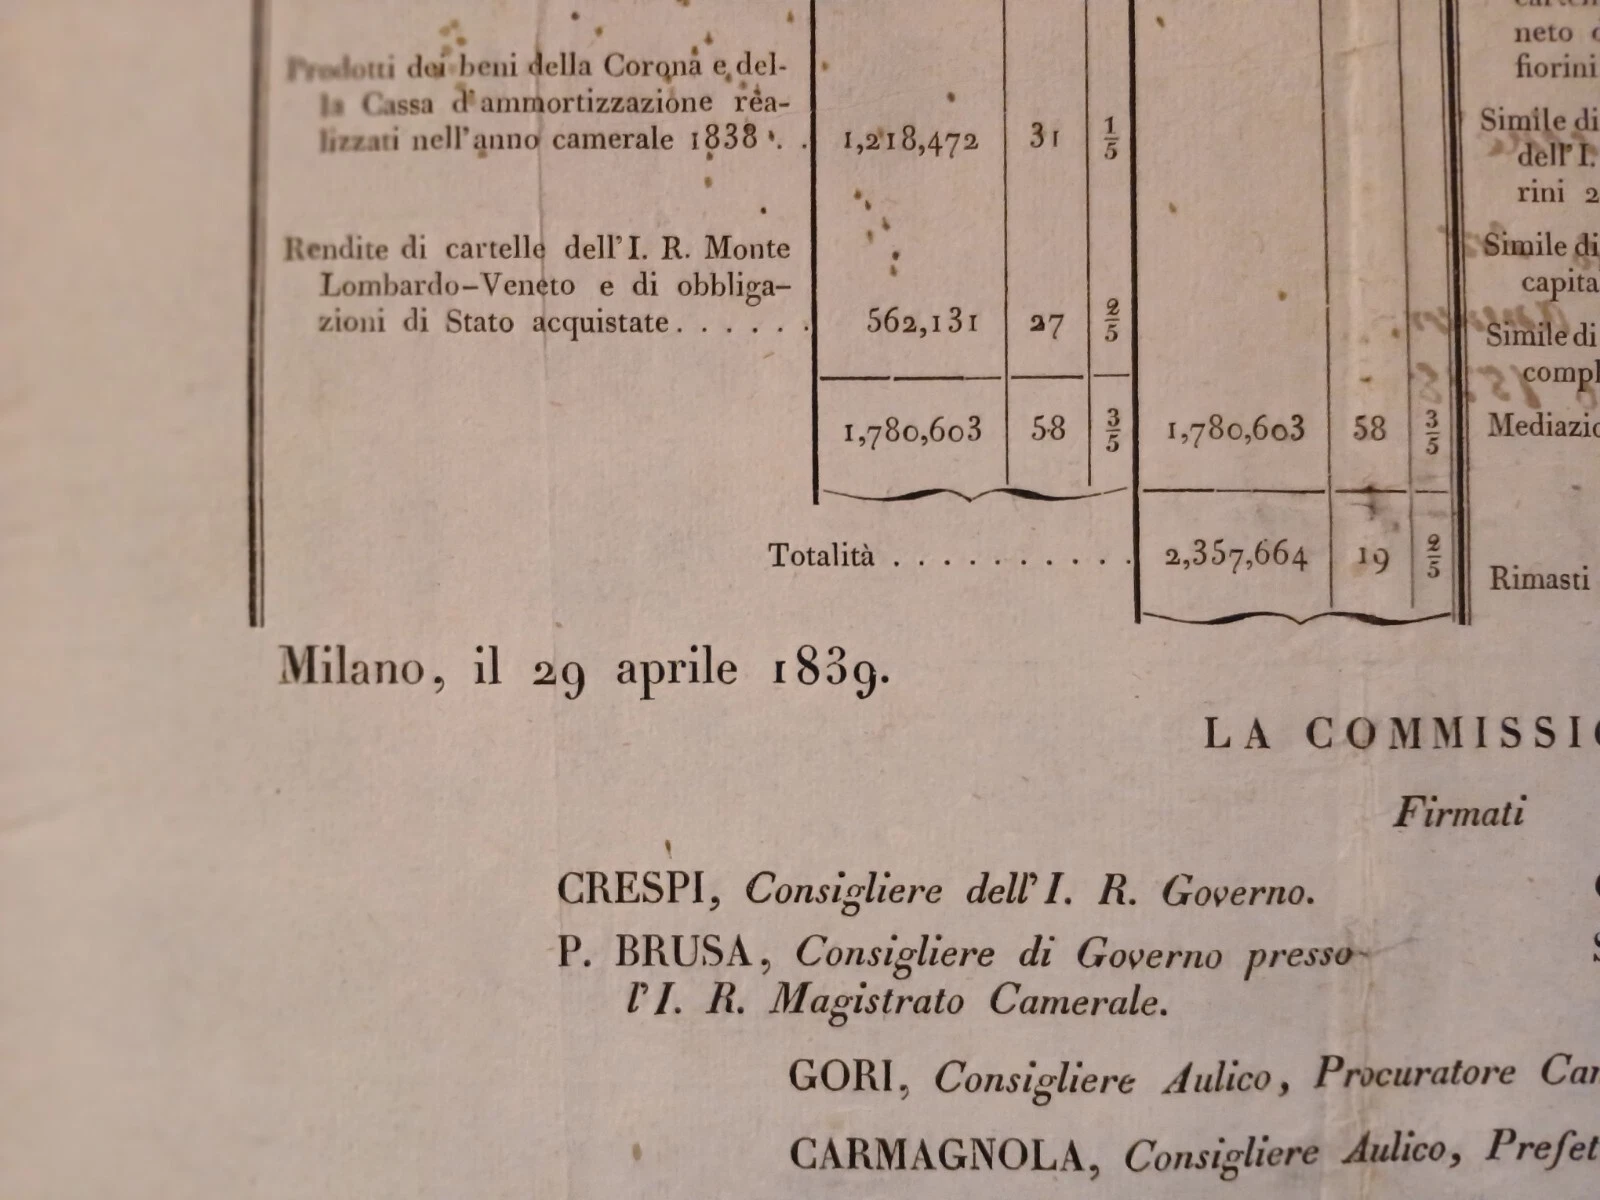 Prodotti dei beni della Corona e del-
la Cassa d'ammortizzazione rea-
lizzati nell'anno camerale 1838 . . 1,218,472 31 1/5
Rendite di cartelle dell'I. R. Monte
Lombardo-Veneto e di obbliga-
zioni di Stato acquistate . . . . . . 562,131 27 2/5
1,780,603 58 3/5 1,780,603 58 3/5
Totalità . . . . . . . . . . 2,357,664 19 2/5
neto
fiorini
Simile di
dell'I.
rini 2
Simile di
capita
Simile di
compl
Mediazio
Rimasti
Milano, il 29 aprile 1839.
LA COMMISSIO
Firmati
CRESPI, Consigliere dell'I. R. Governo.
P. BRUSA, Consigliere di Governo presso
l'I. R. Magistrato Camerale.
GORI, Consigliere Aulico, Procuratore Cam
CARMAGNOLA, Consigliere Aulico, Prefet